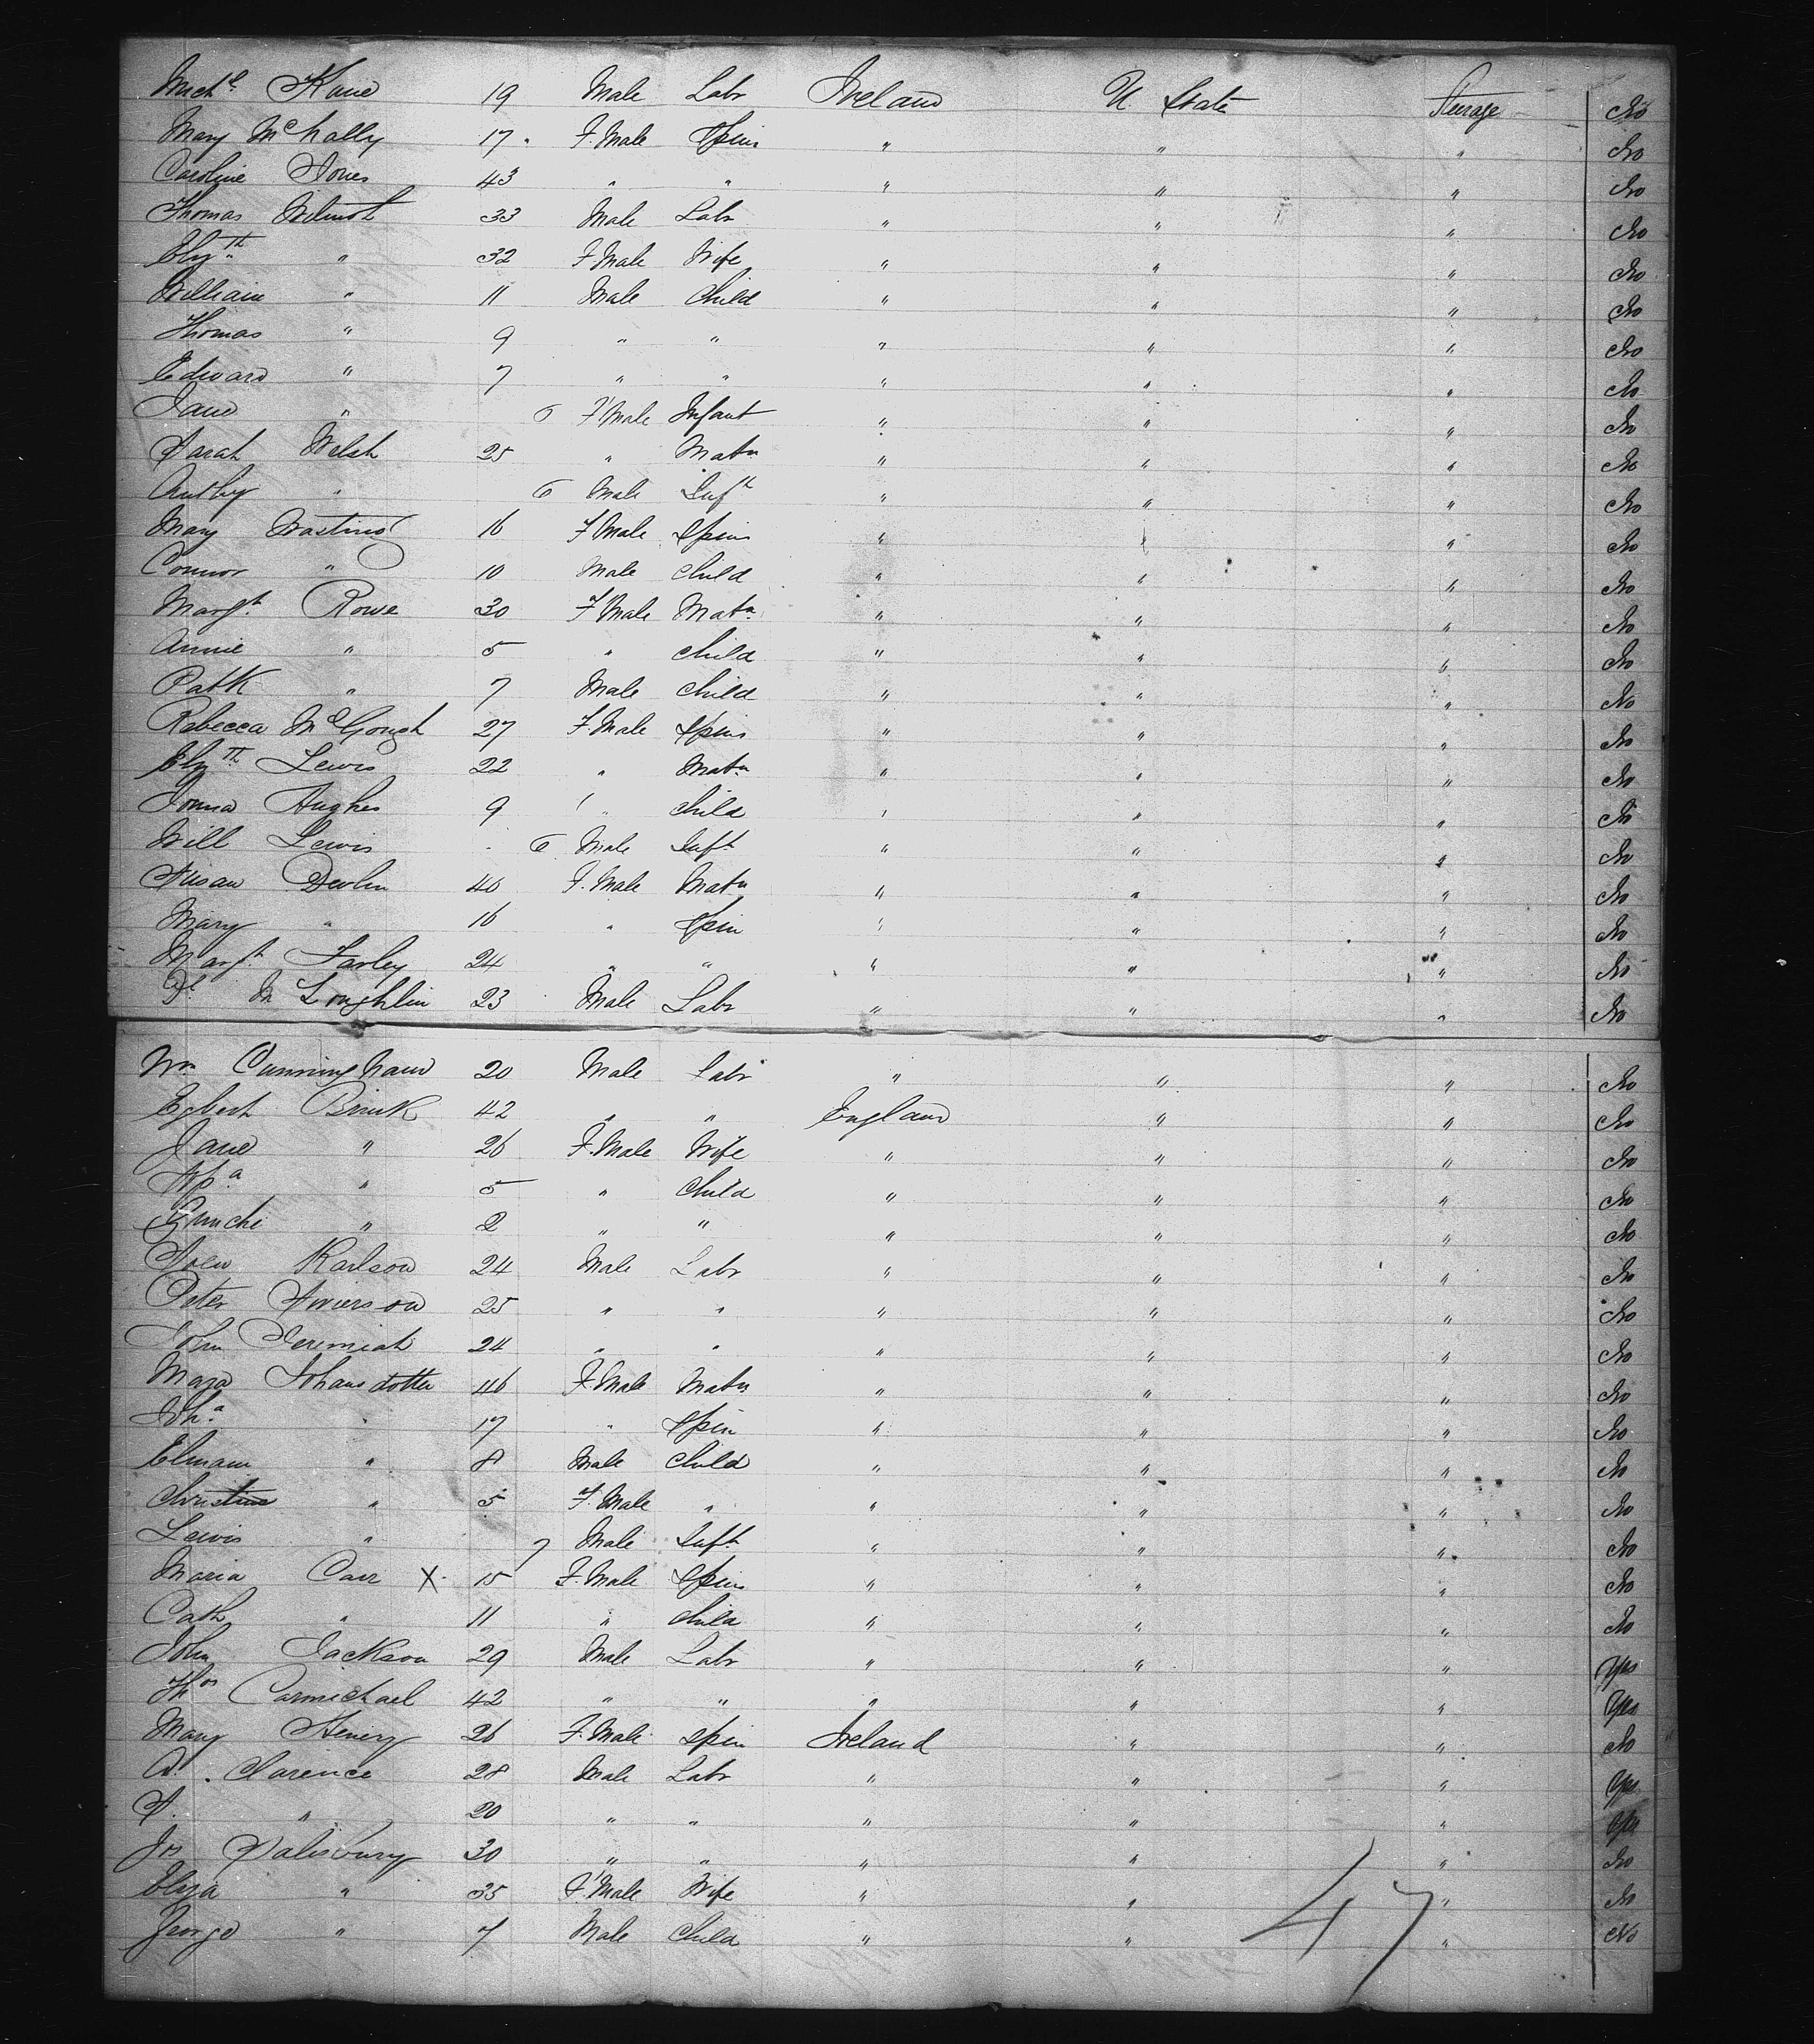 Michl Kane 19 Male Labr Ireland U State Steerage No
Mary McNally 17 F.Male Spins " " " No
Caroline Jones 43 " " " " " No
Thomas Wilmot 33 Male Labr " " " No
Elizth " 32 F Male Wife " " " No
William " 11 Male Child " " " No
Thomas " 9 " " " " " No
Edward " 7 " " " " " No
Jane " 6 F Male Infant " " " No
Sarah Welsh 25 " Matn " " " No
Anthy " 6 Male Inft " " " No
Mary 16 F Male Spins " " " No
Connor " 10 Male Child " " " No
Margt Rowe 30 F Male Matn " " " No
Annie " 5 " Child " " " No
Patk " 7 Male Child " " " No
Rebecca McGough 27 F.Male Spins " " " No
Elizth Lewis 22 " Matn " " " No
Hughes 9 " Child " " " No
Will Lewis 6 Male Inft " " " No
Susan Devlin 40 F.Male Matn " " " No
Mary " 16 " Spin " " " No
Margt Farley 24 " " " " " No
Dl McLoughlin 23 Male Labr " " " No
Wm Cunningham 20 Male Labr " " " No
Egbert Brink 42 " " England " " No
Jane " 26 F.Male Wife " " " No
" 5 " Child " " " No
" 2 " " " " " No
Karlson 24 Male Labr " " " No
Peter 25 " " " " " No
John Jeremiah 24 " " " " " No
Maja Johansdotter 46 F.Male Matn " " " No
Joha " 17 " Spin " " " No
" 8 Male Child " " " No
Christine " 5 F.Male " " " " No
Lewis " 7 Male Inft " " " No
Maria Carr X 15 F.Male Spins " " " No
Cath " 11 " Child " " " No
John Jackson 29 Male Labr " " " Yes
Thos Carmichael 42 " " " " " Yes
Mary Henry 26 F.Male Spin Ireland " " No
A. Clarence 28 Male Labr " " " Yes
S. " 20 " " " " " Yes
Js Salisbury 30 " " " " " No
Eliza " 35 F.Male Wife " " " No
George " 7 Male Child " " " No
47